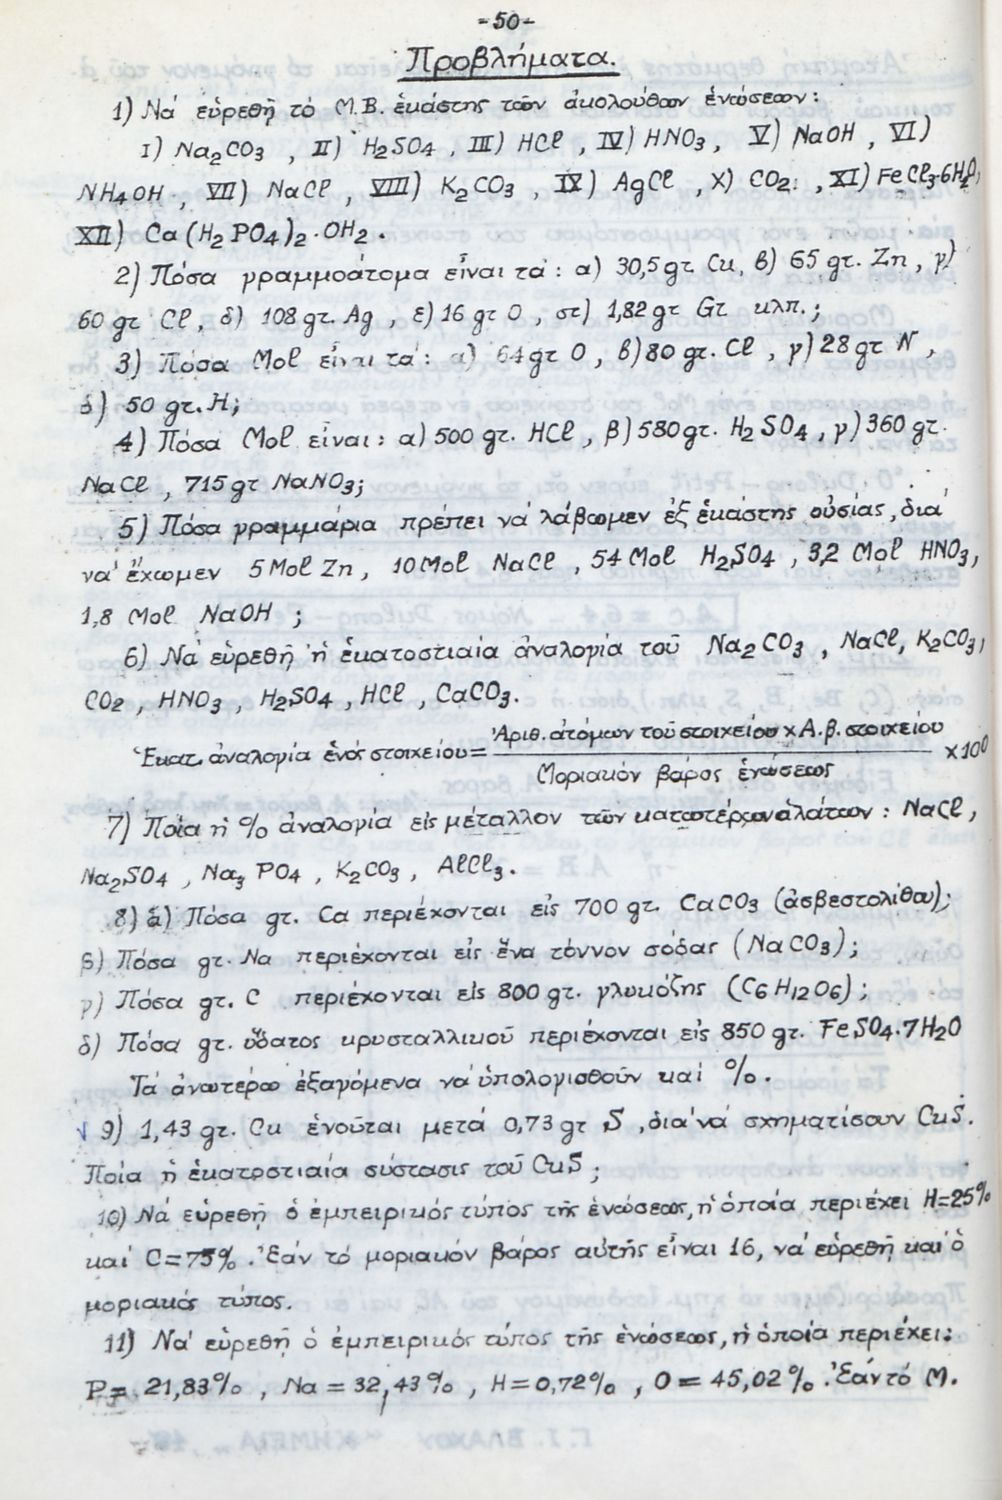 -50-
Προβλήματα.
1) Νά εὑρεθῇ τό Μ.Β. ἑκάστης τῶν ἀκολούθων ἑνώσεων:
I) Na2CO3 , II) H2SO4 , III) HCl , IV) HNO3, V) NaOH , VI)
NH4OH , VII) NaCl , VIII) K2CO3 , IX) AgCl , X) CO2 , XI) FeCl3·6H2O,
XII) Ca(H2PO4)2·OH2.
2) Πόσα γραμμοάτομα εἶναι τά: α) 30,5gr Cu, β) 65 gr. Zn , γ)
60 gr Cl , δ) 108 gr. Ag , ε) 16 gr O , στ) 1,82 gr Gr κλπ.;
3) Πόσα Mol εἶναι τά: α) 64 gr O , β) 80 gr. Cl , γ) 28 gr N ,
δ) 50 gr. H;
4) Πόσα Mol εἶναι: α) 500 gr. HCl , β) 580 gr. H2SO4 , γ) 360 gr.
NaCl , 715 gr NaNO3;
5) Πόσα γραμμάρια πρέπει νά λάβωμεν ἐξ ἑκάστης οὐσίας, διά
νά ἔχωμεν 5 Mol Zn , 10 Mol NaCl , 54 Mol H2SO4 , 3,2 Mol HNO3,
1,8 Mol NaOH ;
6) Νά εὑρεθῇ ἡ ἑκατοστιαία ἀναλογία τοῦ Na2CO3 , NaCl, K2CO3,
CO2 , HNO3 , H2SO4 , HCl , CaCO3.
Ἑκατ. ἀναλογία ἑνός στοιχείου= Ἀριθ. ἀτόμων τοῦ στοιχείου x Α.β. στοιχείου x100
Μοριακόν βάρος ἑνώσεως
7) Ποία ἡ % ἀναλογία εἰς μέταλλον τῶν κατωτέρω ἁλάτων : NaCl,
Na2SO4 , Na3PO4 , K2CO3 , AlCl3.
8) α) Πόσα gr. Ca περιέχονται εἰς 700 gr. CaCO3 (ἀσβεστολίθου);
β) Πόσα gr. Na περιέχονται εἰς ἕνα τόννον σόδας (NaCO3);
γ) Πόσα gr. C περιέχονται εἰς 800 gr. γλυκόζης (C6H12O6);
δ) Πόσα gr. ὕδατος κρυσταλλικοῦ περιέχονται εἰς 850 gr. FeSO4.7H2O
Τά ἀνωτέρω ἐξαγόμενα νά ὑπολογισθοῦν καί %.
9) 1,43 gr. Cu ἑνοῦται μετά 0,73 gr S , διά νά σχηματίσουν CuS.
Ποία ἡ ἑκατοστιαία σύστασις τοῦ CuS ;
10) Νά εὑρεθῇ ὁ ἐμπειρικός τύπος τῆς ἑνώσεως, ἡ ὁποία περιέχει H=25%
καί C=75%. Ἐάν τό μοριακόν βάρος αὐτῆς εἶναι 16, νά εὑρεθῇ καί ὁ
μοριακός τύπος.
11) Νά εὑρεθῇ ὁ ἐμπειρικός τύπος τῆς ἑνώσεως, ἡ ὁποία περιέχει:
P= 21,83% , Na = 32,43% , H=0,72% , O = 45,02%. Ἐάν τό Μ.